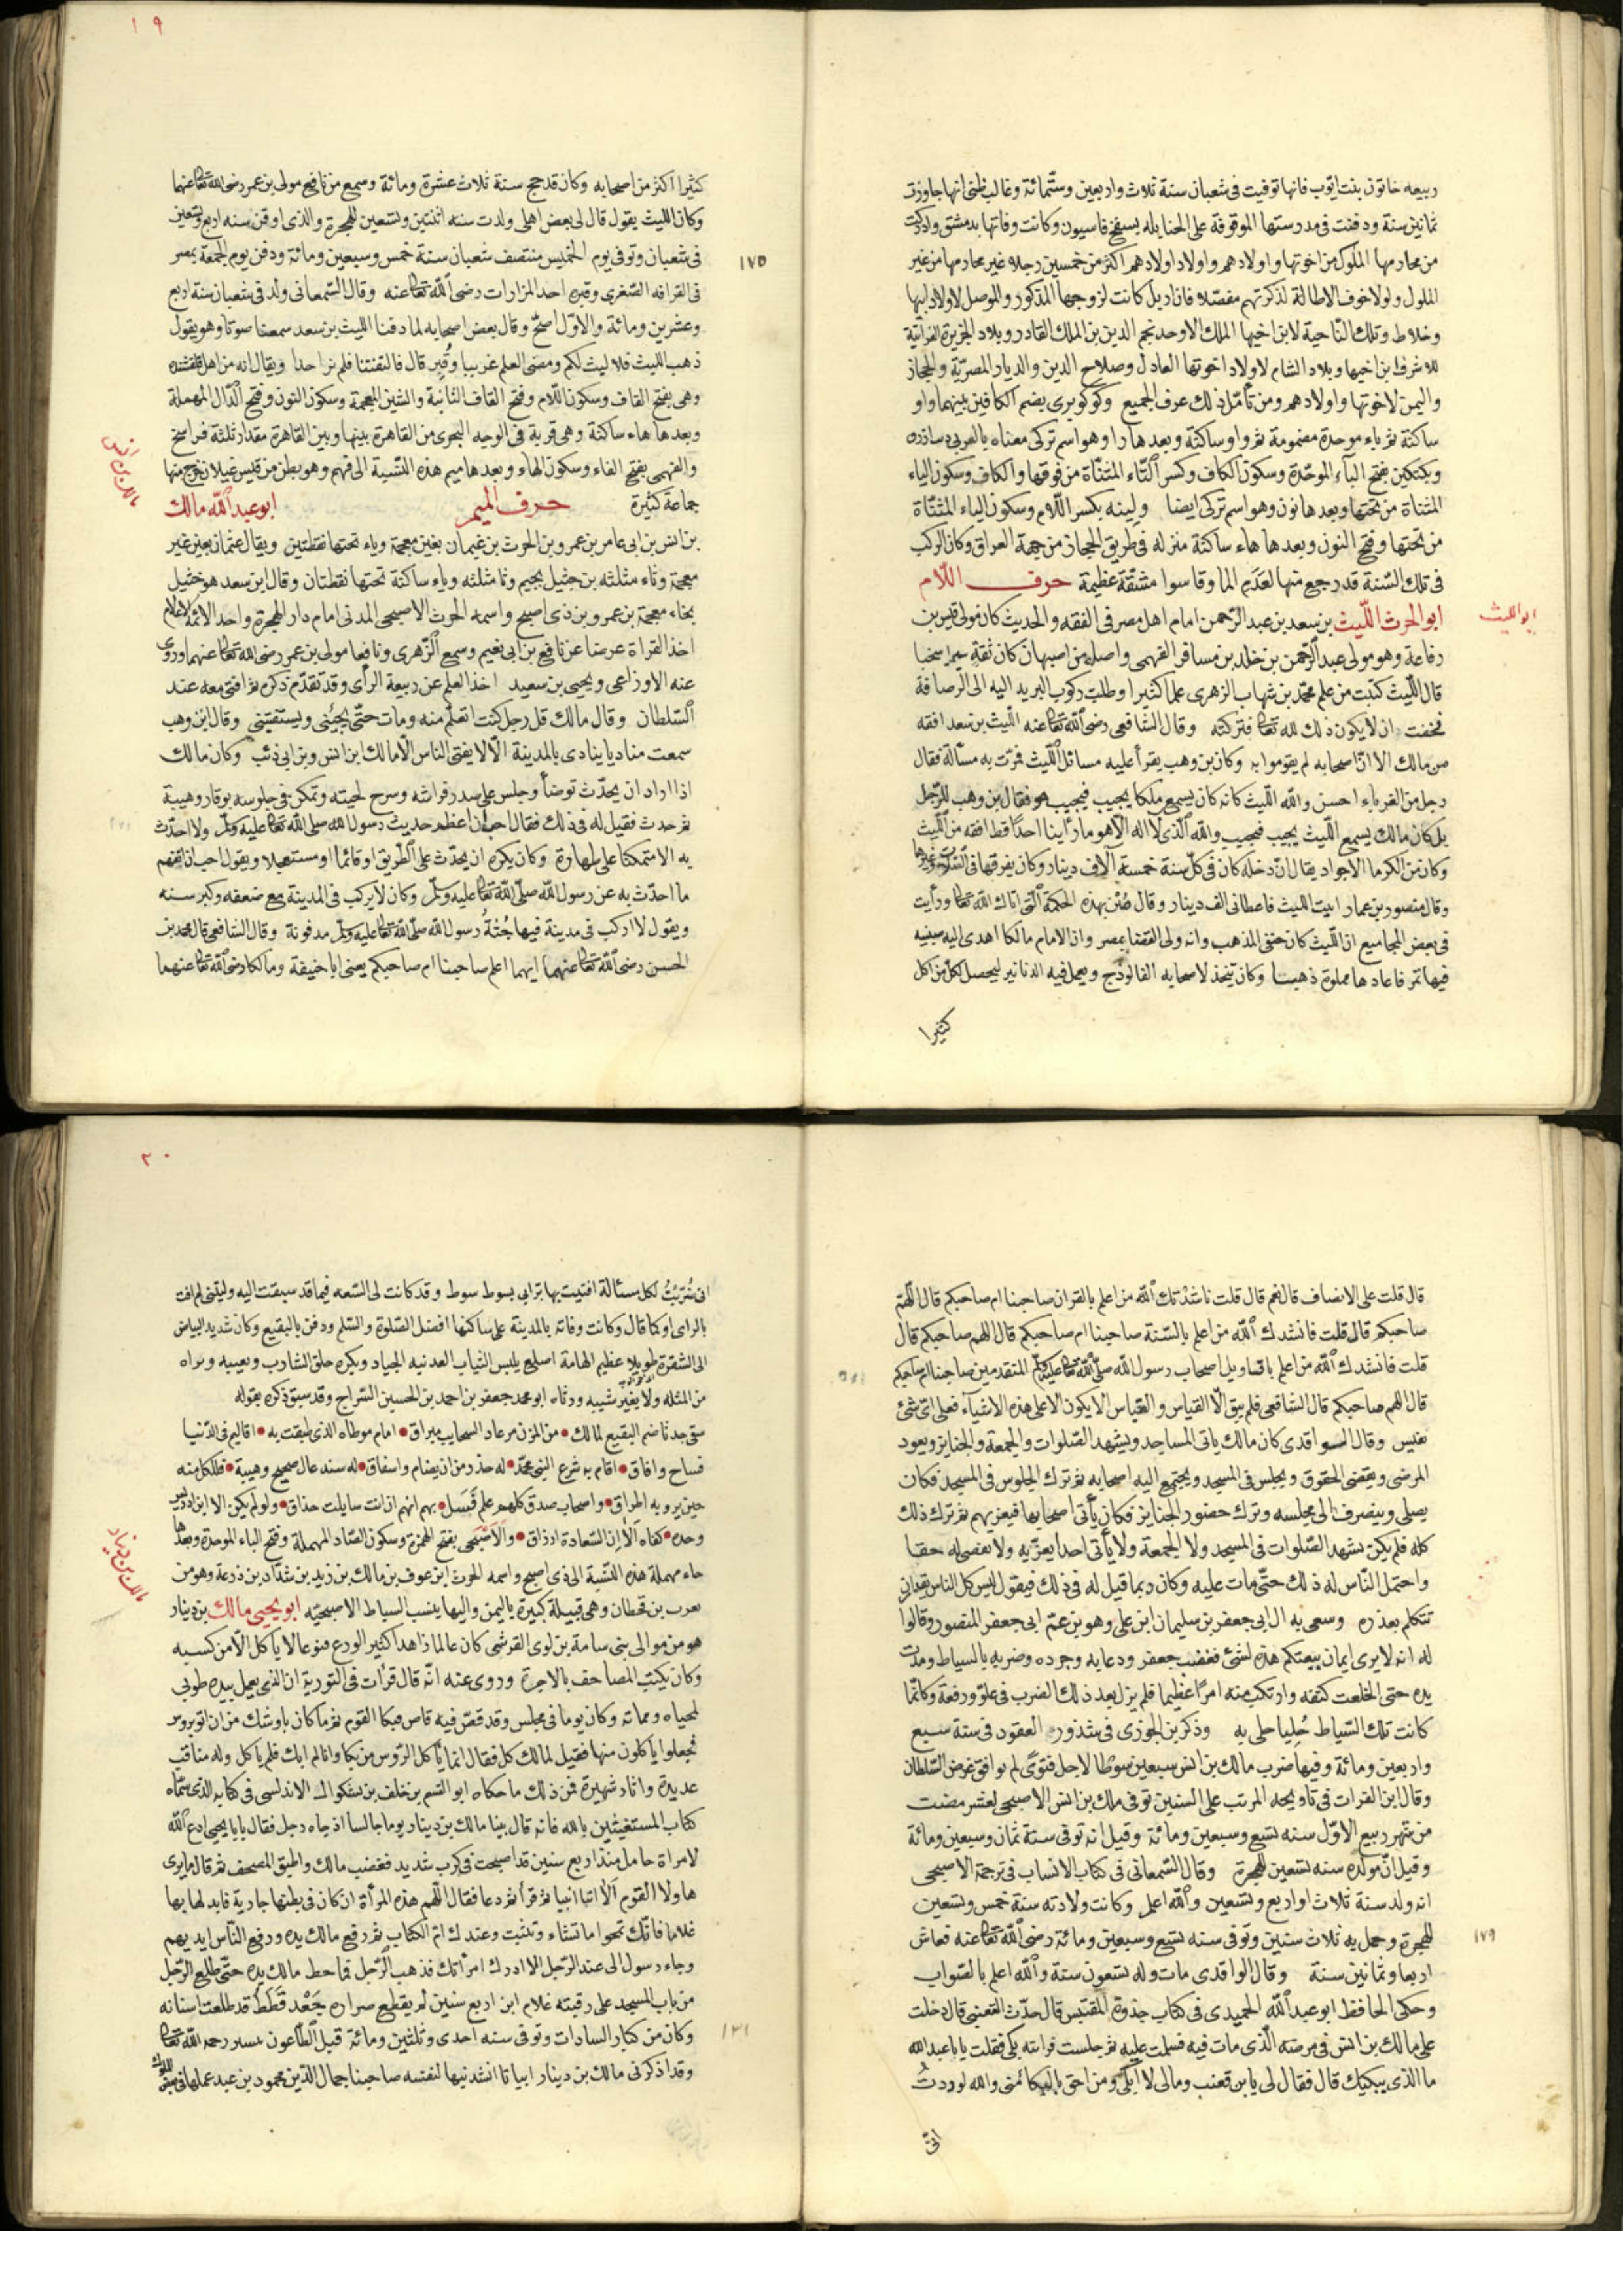 ١٩
ربيعه خاتون بنت ايوب فانها توفيت فى شعبان سنة ثلاث واربعين وستمائة وغالب ظنى انها جاوزت
ثمانين سنة ودفنت فى مدرستها الموقوفة على الحنابله بسفح قاسيون وكانت وفاتها بدمشق وادركت
من محارمها الملوك من اخوتها واولادهم واولاد اولادهم اكثر من خمسين رجلا غير محارمها من غير
الملول ولولا خوف الاطالة لذكرتهم مفصلا فان اربل كانت لزوجها المذكور والموصل لاولاد ابنها
وخلاط وتلك الناحية لابن اخيها الملك الاوحد نجم الدين بن الملك القادر وبلاد الجزيرة الفراتية
للاشرف ابن اخيها وبلاد الشام لاولاد اخوتها العادل وصلاح الدين والديار المصرية والحجاز
واليمن لاخوتها واولادهم ومن تأمل ذلك عرف الجميع وكوكوبرى بضم الكافين بينهما واو
ساكنة ثم باء موحدة مضمومة ثم واو ساكنة وبعدها را وهو اسم تركى معناه بالعربى
وبكتكين بفتح الباء الموحدة وسكون الكاف وكسر التاء المثناة من فوقها والكاف وسكون الياء
المثناة من تحتها وبعدها نون وهو اسم تركى ايضا ولينه بكسر اللام وسكون الياء المثناة
من تحتها وفتح النون وبعدها هاء ساكنة منزله فى طريق الحجاز من جهة العراق وكان الركب
فى تلك السنة قد رجع منها لعدم الما وقاسوا مشقة عظيمة حرف اللام
ابو الليث
ابو الحرث الليث بن سعد بن عبد الرحمن امام اهل مصر فى الفقه والحديث كان مولى قيس بن
رفاعة وهو مولى عبد الرحمن بن خلد بن مسافر الفهمى واصله من اصبهان كان ثقة سريا سخيا
قال الليث كتبت من علم محمد بن شهاب الزهرى علما كثيرا وطلبت ركوب البريد اليه الى الرصافة
فخفت ان لا يكون ذلك لله تعا فتركته وقال الشافعى رضى الله تعا عنه الليث بن سعد افقه
من مالك الا ان اصحابه لم يقوموا به وكان بن وهب يقرأ عليه مسائل الليث فمرت به مسألة فقال
رجل من الغرباء احسن والله الليث كانه كان يسمع ملكا يجيب فيجيب هو فقال بن وهب للرجل
بل كان مالك يسمع الليث يجيب فيجيب والله الذى لا اله الا هو ما راينا احدا قط افقه من الليث
وكان من الكرما الاجواد يقال ان دخله كان فى كل سنة خمسة آلاف دينار وكان يفرقها فى الصلات وغيرها
وقال منصور بن عمار اتيت الليث فاعطانى الف دينار وقال صن بهذه الحكمة التى اتاك الله تعا ورأيت
فى بعض المجاميع ان الليث كان حنفى المذهب وانه ولى القضا بمصر وان الامام مالكا اهدى اليه صينيه
فيها تمر فاعادها مملوة ذهبا وكان يتخذ لاصحابه الفالوذج ويعمل فيه الدنانير ليحصل لكل من اكل
كثيرا
كثيرا اكثر من اصحابه وكان قد حج سنة ثلاث عشرة ومائة وسمع من نافع مولى بن عمر رضى الله تعا عنهما
وكان الليث يقول قال لى بعض اهلى ولدت سنه اثنتين وتسعين للهجرة والذى اوقن سنه اربع وتسعين
فى شعبان وتوفى يوم الخميس منتصف شعبان سنة خمس وسبعين ومائة ودفن يوم الجمعة بمصر
١٧٥
فى القرافه الصغرى وقبره احد المزارات رضى الله تعا عنه وقال السمعانى ولد فى شعبان سنة اربع
وعشرين ومائة والاول اصح وقال بعض اصحابه لما دفنا الليث بن سعد سمعنا صوتا وهو يقول
ذهب الليث فلا ليث لكم ومضى العلم غريبا وقبر قال فالتفتنا فلم نر احدا ويقال انه من اهل قلقشنده
وهى بفتح القاف وسكون اللام وفتح القاف الثانية والشين المعجمة وسكون النون وفتح الدال المهملة
وبعدها هاء ساكنة وهى قرية فى الوجه البحرى من القاهرة بينها وبين القاهرة مقدار ثلثة فراسخ
والفهمى بفتح الفاء وسكون الهاء وبعدها ميم هذه النسبة الى فهم وهو بطن من قيس غيلان خرج منها
مالك بن انس
جماعة كثيرة حرف الميم ابو عبد الله مالك
بن انس بن ابى عامر بن عمرو بن الحرث بن غيمان بغين معجمة وياء تحتها نقطتين ويقال عثمان بعين غير
معجمة وثاء مثلثه بن جثيل بجيم وثا مثلثه وياء ساكنة تحتها نقطتان وقال ابن سعد هو خثيل
بخاء معجمة بن عمرو بن ذى اصبح واسمه الحرث الاصبحى المدنى امام دار الهجرة واحد الائمة الاعلام
اخذ القراة عرضا عن نافع بن ابى نعيم وسمع الزهرى ونافعا مولى بن عمر رضى الله تعا عنهما وروى
عنه الاوزاعى ويحيى بن سعيد اخذ العلم عن ربيعة الرأى وقد تقدم ذكره ثم افتى معه عند
السلطان وقال مالك قل رجل كنت اتعلم منه ومات حتى يجيئنى ويستفتينى وقال ابن وهب
سمعت مناديا ينادى بالمدينة الا لا يفتى الناس الا مالك ابن انس وبن ابى ذئب وكان مالك
اذا اراد ان يحدث توضأ وجلس على صدر فراشه وسرح لحيته وتمكن فى جلوسه بوقار وهيبة
ثم حدث فقيل له فى ذلك فقال احب ان اعظم حديث رسول الله صلى الله تعا عليه وسلم ولا احدث
به الا متمكنا على طهارة وكان يكره ان يحدث على الطريق او قائما او مستعجلا ويقول احب ان اتفهم
ما احدث به عن رسول الله صلى الله تعا عليه وسلم وكان لا يركب فى المدينة مع ضعفه وكبر سنه
ويقول لا اركب فى مدينة فيها جثة رسول الله صلى الله تعا عليه وسلم مدفونة وقال الشافعى قال محمد بن
الحسن رضى الله تعا عنهما ايهما اعلم صاحبنا ام صاحبكم يعنى ابا حنيفة ومالكا رضى الله تعا عنهما
٢٠
قال قلت على الانصاف قال نعم قال قلت ناشدتك الله من اعلم بالقران صاحبنا ام صاحبكم قال اللهم
صاحبكم قال قلت فانشدك الله من اعلم بالسنة صاحبنا ام صاحبكم قال اللهم صاحبكم قال
قلت فانشدك الله من اعلم باقاويل اصحاب رسول الله صلى الله تعا عليه وسلم المتقدمين صاحبنا ام صاحبكم
قال اللهم صاحبكم قال الشافعى فلم يبق الا القياس والقياس لا يكون الا على هذه الاشياء فعلى اى شئ
نقيس وقال الواقدى كان مالك ياتى المساجد ويشهد الصلوات والجمعة والجنايز ويعود
المرضى ويقضى الحقوق ويجلس فى المسجد ويجتمع اليه اصحابه ثم ترك الجلوس فى المسجد فكان
يصلى وينصرف الى مجلسه وترك حضور الجنايز فكان يأتى اصحابها فيعزيهم ثم ترك ذلك
كله فلم يكن يشهد الصلوات فى المسجد ولا الجمعة ولا يأتى احدا يعزيه ولا يقضى له حقا
واحتمل الناس له ذلك حتى مات عليه وكان ربما قيل له فى ذلك فيقول ليس كل الناس يقدر ان
تتكلم بعذره وسعى به الى ابى جعفر بن سليمان ابن على وهو بن عم ابى جعفر المنصور وقالوا
له انه لا يرى ايمان بيعتكم هذه لشئ فغضب جعفر ودعا به وجرده وضربه بالسياط ومدت
يده حتى انخلعت كتفه وارتكب منه امرا عظيما فلم يزل بعد ذلك الضرب فى علو ورفعة وكانما
كانت تلك السياط حليا حلى به وذكر بن الجوزى فى شذور العقود فى سنة سبع
واربعين ومائة وفيها ضرب مالك بن انس سبعين سوطا لاجل فتوى لم توافق غرض السلطان
وقال ابن الفرات فى تاريخه المرتب على السنين توفى ملك بن انس الاصبحى لعشر مضت
من شهر ربيع الاول سنه تسع وسبعين ومائة وقيل انه توفى سنة ثمان وسبعين ومائة
وقيل ان مولده سنه تسعين للهجرة وقال السمعانى فى كتاب الانساب فى ترجمة الاصبحى
انه ولد سنة ثلاث او اربع وتسعين والله اعلم وكانت ولادته سنة خمس وتسعين
للهجرة وحمل به ثلاث سنين وتوفى سنه تسع وسبعين ومائة رضى الله تعا عنه فعاش
١٧٩
اربعا وثمانين سنة وقال الواقدى مات وله تسعون سنة والله اعلم بالصواب
وحكى الحافظ ابو عبد الله الحميدى فى كتاب جذوة المقتبس قال حدث القعنبى قال دخلت
على مالك بن انس فى مرضه الذى مات فيه فسلمت عليه ثم جلست فرايته يبكى فقلت يابا عبد الله
ما الذى يبكيك قال فقال لى يا بن قعنب ومالى لا ابكى ومن احق بالبكا منى والله لوددت
انى
انى ضربت لكل مسألة افتيت بها برايى بسوط سوط وقد كانت لى السعه فيما قد سبقت اليه وليتنى لم افت
بالراى او كما قال وكانت وفاته بالمدينة على ساكنها افضل الصلوة والسلم ودفن بالبقيع وكان شديد البياض
الى الشقرة طويلا عظيم الهامة اصلع يلبس الثياب العدنيه الجياد ويكره حلق الشارب ويعيبه ويراه
من المثله ولا يغير شيبه ورثاه ابو محمد جعفر بن احمد بن الحسين السراج وقد سبق ذكره بقوله
سقى جدثا ضم البقيع لمالك • من المزن مرعاد السحايب مبراق • امام موطاه الذى طبقت به • اقاليم فى الدنيا
فساح وافاق • اقام به شرع النبى محمد • له حذر من ان يضام واشفاق • له سند عال صحيح وهيبة • فللكل منه
حين يرويه اطراق • واصحاب صدق كلهم علم فسل • بهم انهم ان انت سايلت حذاق • ولو لم يكن الا ابن ادريس
وحده • كفاه الا ان السعادة ارزاق • والاصبحى بفتح الهمزة وسكون الصاد المهملة وفتح الباء الموحدة وبعدها
حاء مهملة هذه النسبة الى ذى اصبح واسمه الحرث ابن عوف بن مالك بن زيد بن شداد بن زرعة وهو من
مالك بن دينار
يعرب بن قحطان وهى قبيلة كبيرة باليمن واليها ينسب السياط الاصبحيه ابو يحيى مالك بن دينار
هو من موالى بنى سامة بن لوى القرشى كان عالما زاهدا كثير الورع قنوعا لا يأكل الا من كسبه
وكان يكتب المصاحف بالاجرة وروى عنه انه قال قرات فى التورية ان الذى يعمل بيده طوبى
لمحياه ومماته وكان يوما فى مجلس وقد قص فيه قاص فبكا القوم ثم ما كان باوشك من ان اتو بروس
فجعلوا يأكلون منها فقيل لمالك كل فقال انما يأكل الروس من بكا وانا لم ابك فلم يأكل وله مناقب
عديدة واثار شهيرة فمن ذلك ما حكاه ابو القسم بن خلف بن بشكوال الاندلسى فى كتابه الذى سماه
كتاب المستغيثين بالله فانه قال بينا مالك بن دينار يوما جالسا اذ جاه رجل فقال يابا يحيى ادع الله
لامراة حامل منذ اربع سنين قد اصبحت فى كرب شديد فغضب مالك واطبق المصحف ثم قال ما يرى
هاولا القوم الا اننا انبيا ثم قرأ ثم دعا فقال اللهم هذه المرأة ان كان فى بطنها جارية فابدلها بها
غلاما فانك تمحو ما تشاء وتثبت وعندك ام الكتاب ثم رفع مالك يده ورفع الناس ايديهم
وجاء رسول الى عند الرجل الا ادرك امرأتك فذهب الرجل فما حط مالك يده حتى طلع الرجل
من باب المسجد على رقبته غلام ابن اربع سنين لم يقطع صراره جعد قطط قد طلعت اسنانه
وكان من كبار السادات وتوفى سنه احدى وثلثين ومائة قبل الطاعون بيسير رحمه الله تعا
١٣١
وقد اذكرنى مالك بن دينار ابياتا انشدنيها لنفسه صاحبنا جمال الدين محمود بن عبد عملها فى بعض الملوك